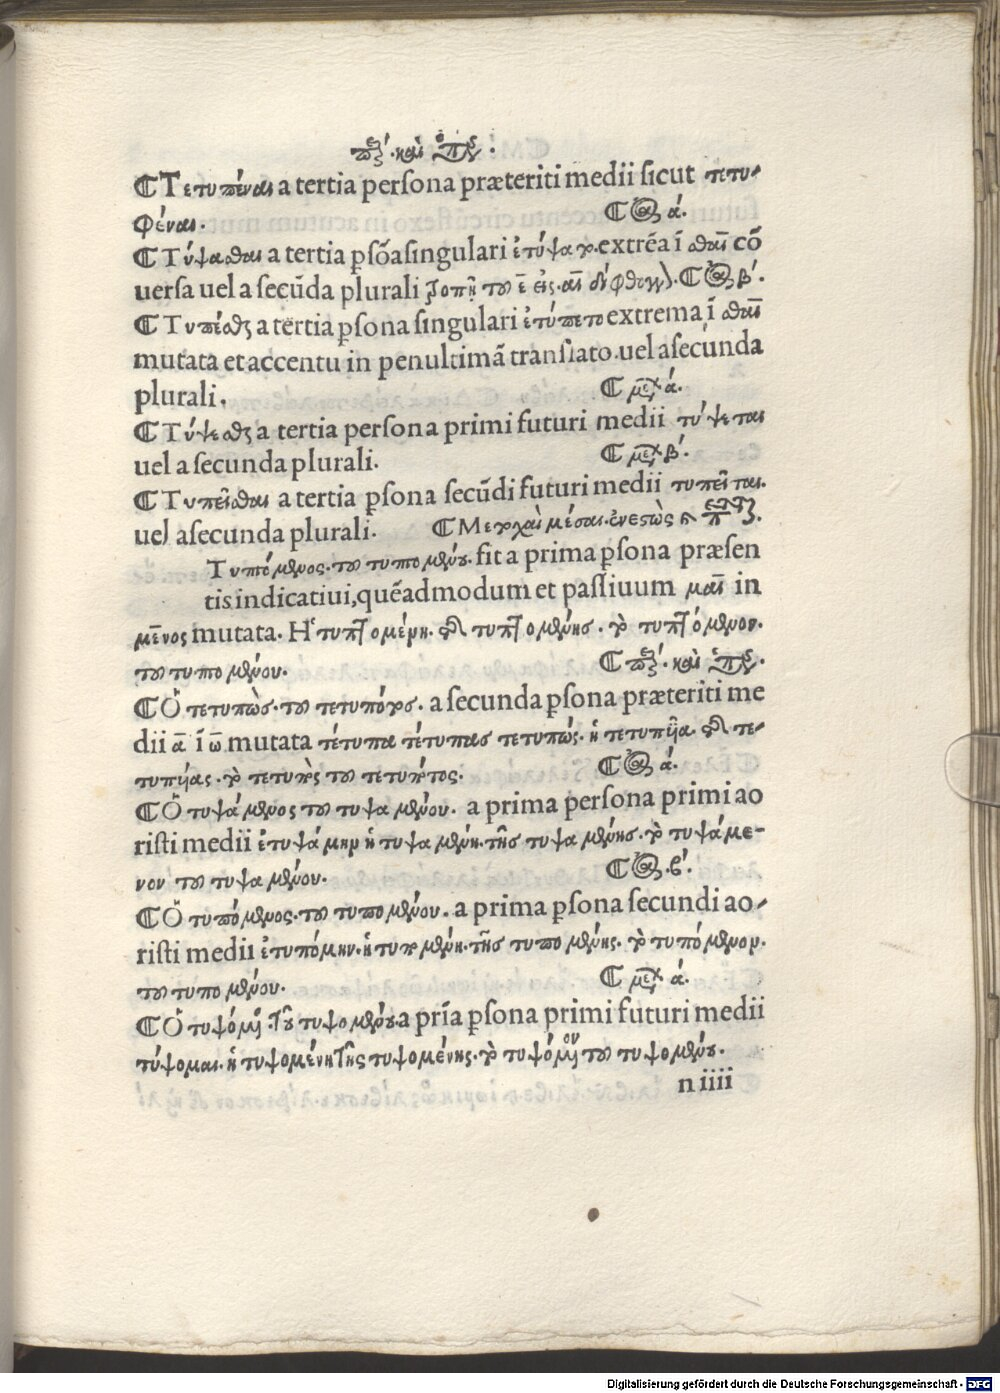 ⁋Τετυπέναι a tertia perſona præteriti medii ſicut τετυ-
φέναι.
⁋ ά.
⁋Τύψαϑαι a tertia ꝑſõa ſingulari ἐτύψατο. extrẽa ĩ ϑαι cõ
uerſa uel a ſecũda plurali
⁋ β΄.
⁋Τυπέϑαι a tertia ꝑſona ſingulari ἐτύπετο extrema ĩ ϑαι
mutata et accentu in penultimã tranſlato. uel a ſecunda
plurali.
⁋ ά.
⁋Τύψεϑαι a tertia perſona primi futuri medii τύψεται
uel a ſecunda plurali.
⁋ β΄.
⁋Τυπεῖϑαι a tertia ꝑſona ſecũdi futuri medii τυπεῖται.
uel a ſecunda plurali.
⁋Μετοχαὶ μέσαι. ἐνεστὼς
Τυπόμενος. τοῦ τυπομένου. fit a prima ꝑſona præſen
tis indicatiui, quẽadmodum et paſſiuum μαι in
μενος mutata. Ἡ τυπτομένη. τῆς τυπτομένης. τὸ τυπτόμενον.
τοῦ τυπομένου.
⁋Ὁ τετυπὼς. τοῦ τετυπότος. a ſecunda ꝑſona præteriti me
dii ᾱ ĩ ω̄ mutata τέτυπα τέτυπας τετυπώς. ἡ τετυπῖα. τῆς τε-
τυπίας. τὸ τετυπὸς τοῦ τετυπότος.
⁋ ά.
⁋Ὁ τυψάμενος τοῦ τυψαμένου. a prima perſona primi ao
riſti medii ἐτυψάμην ἡ τυψαμένη. τῆς τυψαμένης. τὸ τυψάμε-
νον τοῦ τυψαμένου.
⁋ ϐ΄.
⁋Ὁ τυπόμενος. τοῦ τυπομένου. a prima ꝑſona ſecundi ao-
riſti medii ἐτυπόμην. ἡ τυπομένη. τῆς τυπομένης. τὸ τυπόμενον.
τοῦ τυπομένου.
⁋ ά.
⁋Ὁ τυψόμενος τοῦ τυψομένου a prĩa ꝑſona primi futuri medii
τύψομαι. ἡ τυψομένη τῆς τυψομένης. τὸ τυψόμενον τοῦ τυψομένου.
n iiii
Digitalisierung gefördert durch die Deutsche Forschungsgemeinschaft - DFG